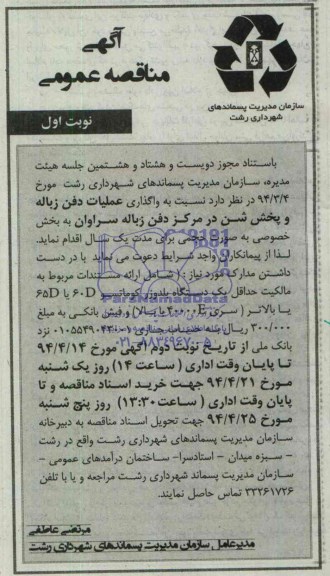 آگهی
مناقصه عمومی
سازمان مدیریت پسماندهای
شهرداری رشت
نوبت اول
باستناد مجوز دویست و هشتاد و هشتمین جلسه هیئت
مدیره، سازمان مدیریت پسماندهای شهرداری رشت مورخ
۹۴/۳/۴ در نظر دارد نسبت به واگذاری عملیات دفن زباله
و پخش شن در مرکز دفن زباله سراوان به بخش
خصوصی به صورت حجمی برای مدت یک سال اقدام نماید.
لذا از پیمانکاران واجد شرایط دعوت می نماید با در دست
داشتن مدارک مورد نیاز : ( شامل ارائه مستندات مربوط به
مالکیت حداقل یک دستگاه بلدوزر کوماتسو 60D یا 65D
یا بالاتر ( سری ... یا بالا) و فیش بانکی به مبلغ
۳۰۰/۰۰۰ ریال به حساب جاری ... نزد
بانک ملی از تاریخ نوبت دوم آگهی مورخ ۹۴/۴/۱۴
تا پایان وقت اداری ( ساعت ۱۴) روز یک شنبه
مورخ ۹۴/۴/۲۱ جهت خرید اسناد مناقصه و تا
پایان وقت اداری ( ساعت ۱۳:۳۰) روز پنج شنبه
مورخ ۹۴/۴/۲۵ جهت تحویل اسناد مناقصه به دبیرخانه
سازمان مدیریت پسماندهای شهرداری رشت واقع در رشت
- سبزه میدان - استادسرا- ساختمان درآمدهای عمومی -
سازمان مدیریت پسماند شهرداری رشت مراجعه و یا با تلفن
۳۳۲۶۱۷۲۶ تماس حاصل نمایند.
مرتضی عاطفی
مدیرعامل سازمان مدیریت پسماندهای شهرداری رشت
ParsNamadData
۰۲۱-۸۸۳۴۹۶۷۰-۵